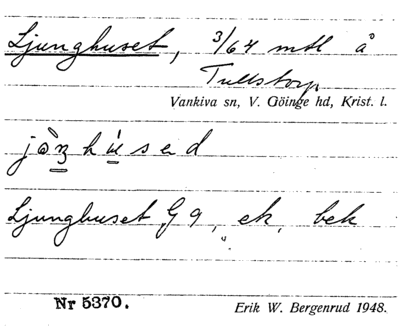 Ljunghuset, 3/64 mtl å
Tullstorp
Vankiva sn, V. Göinge hd, Krist. l.
Ljunghuset G 9, ek, bek
Nr 5370.
Erik W. Bergenrud 1948.